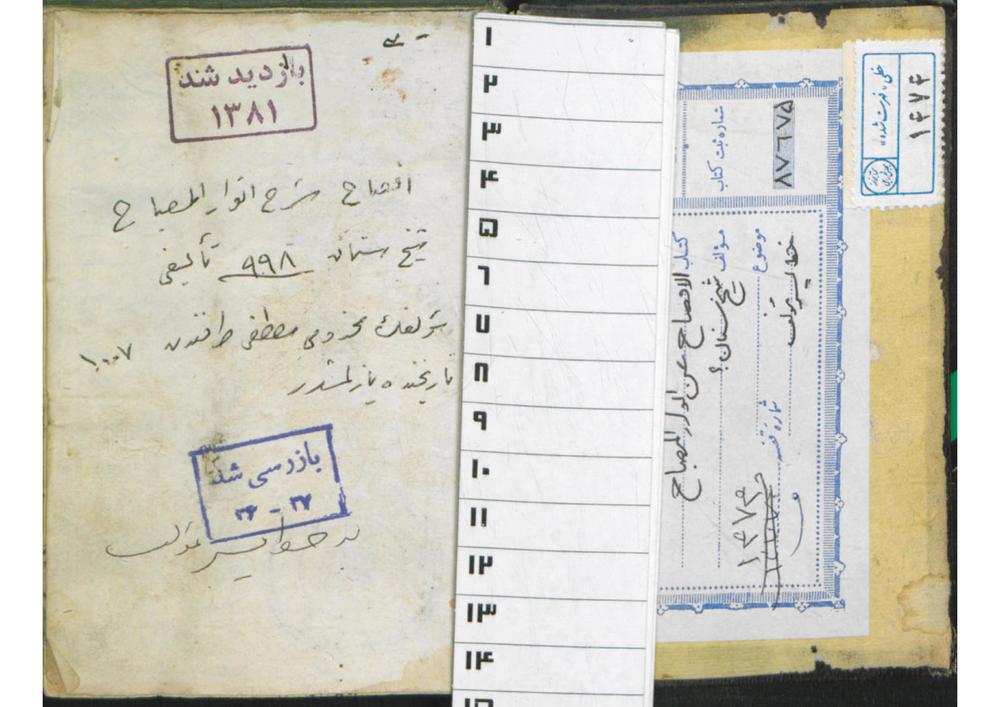 بازدید شد
۱۳۸۱
افصاح شرح انوار المصباح
شیخ سنان ۹۹۸ تألیفی
مؤلفك مخدومی مصطفی طرفندن ۱۰۰۷
تاریخنده یازلمشدر
بازرسی شد
۳۷ - ۳۶
۱
۲
۳
۴
۵
۶
۷
۸
۹
۱۰
۱۱
۱۲
۱۳
۱۴
۱۵
شماره ثبت کتاب
۸۷۶۷۵
کتاب الافصاح عن انوار المصباح
مؤلف شیخ سنان؟
موضوع
شماره قفسه
۱۴۷۴
خطی «فهرست شده»
۱۴۷۴